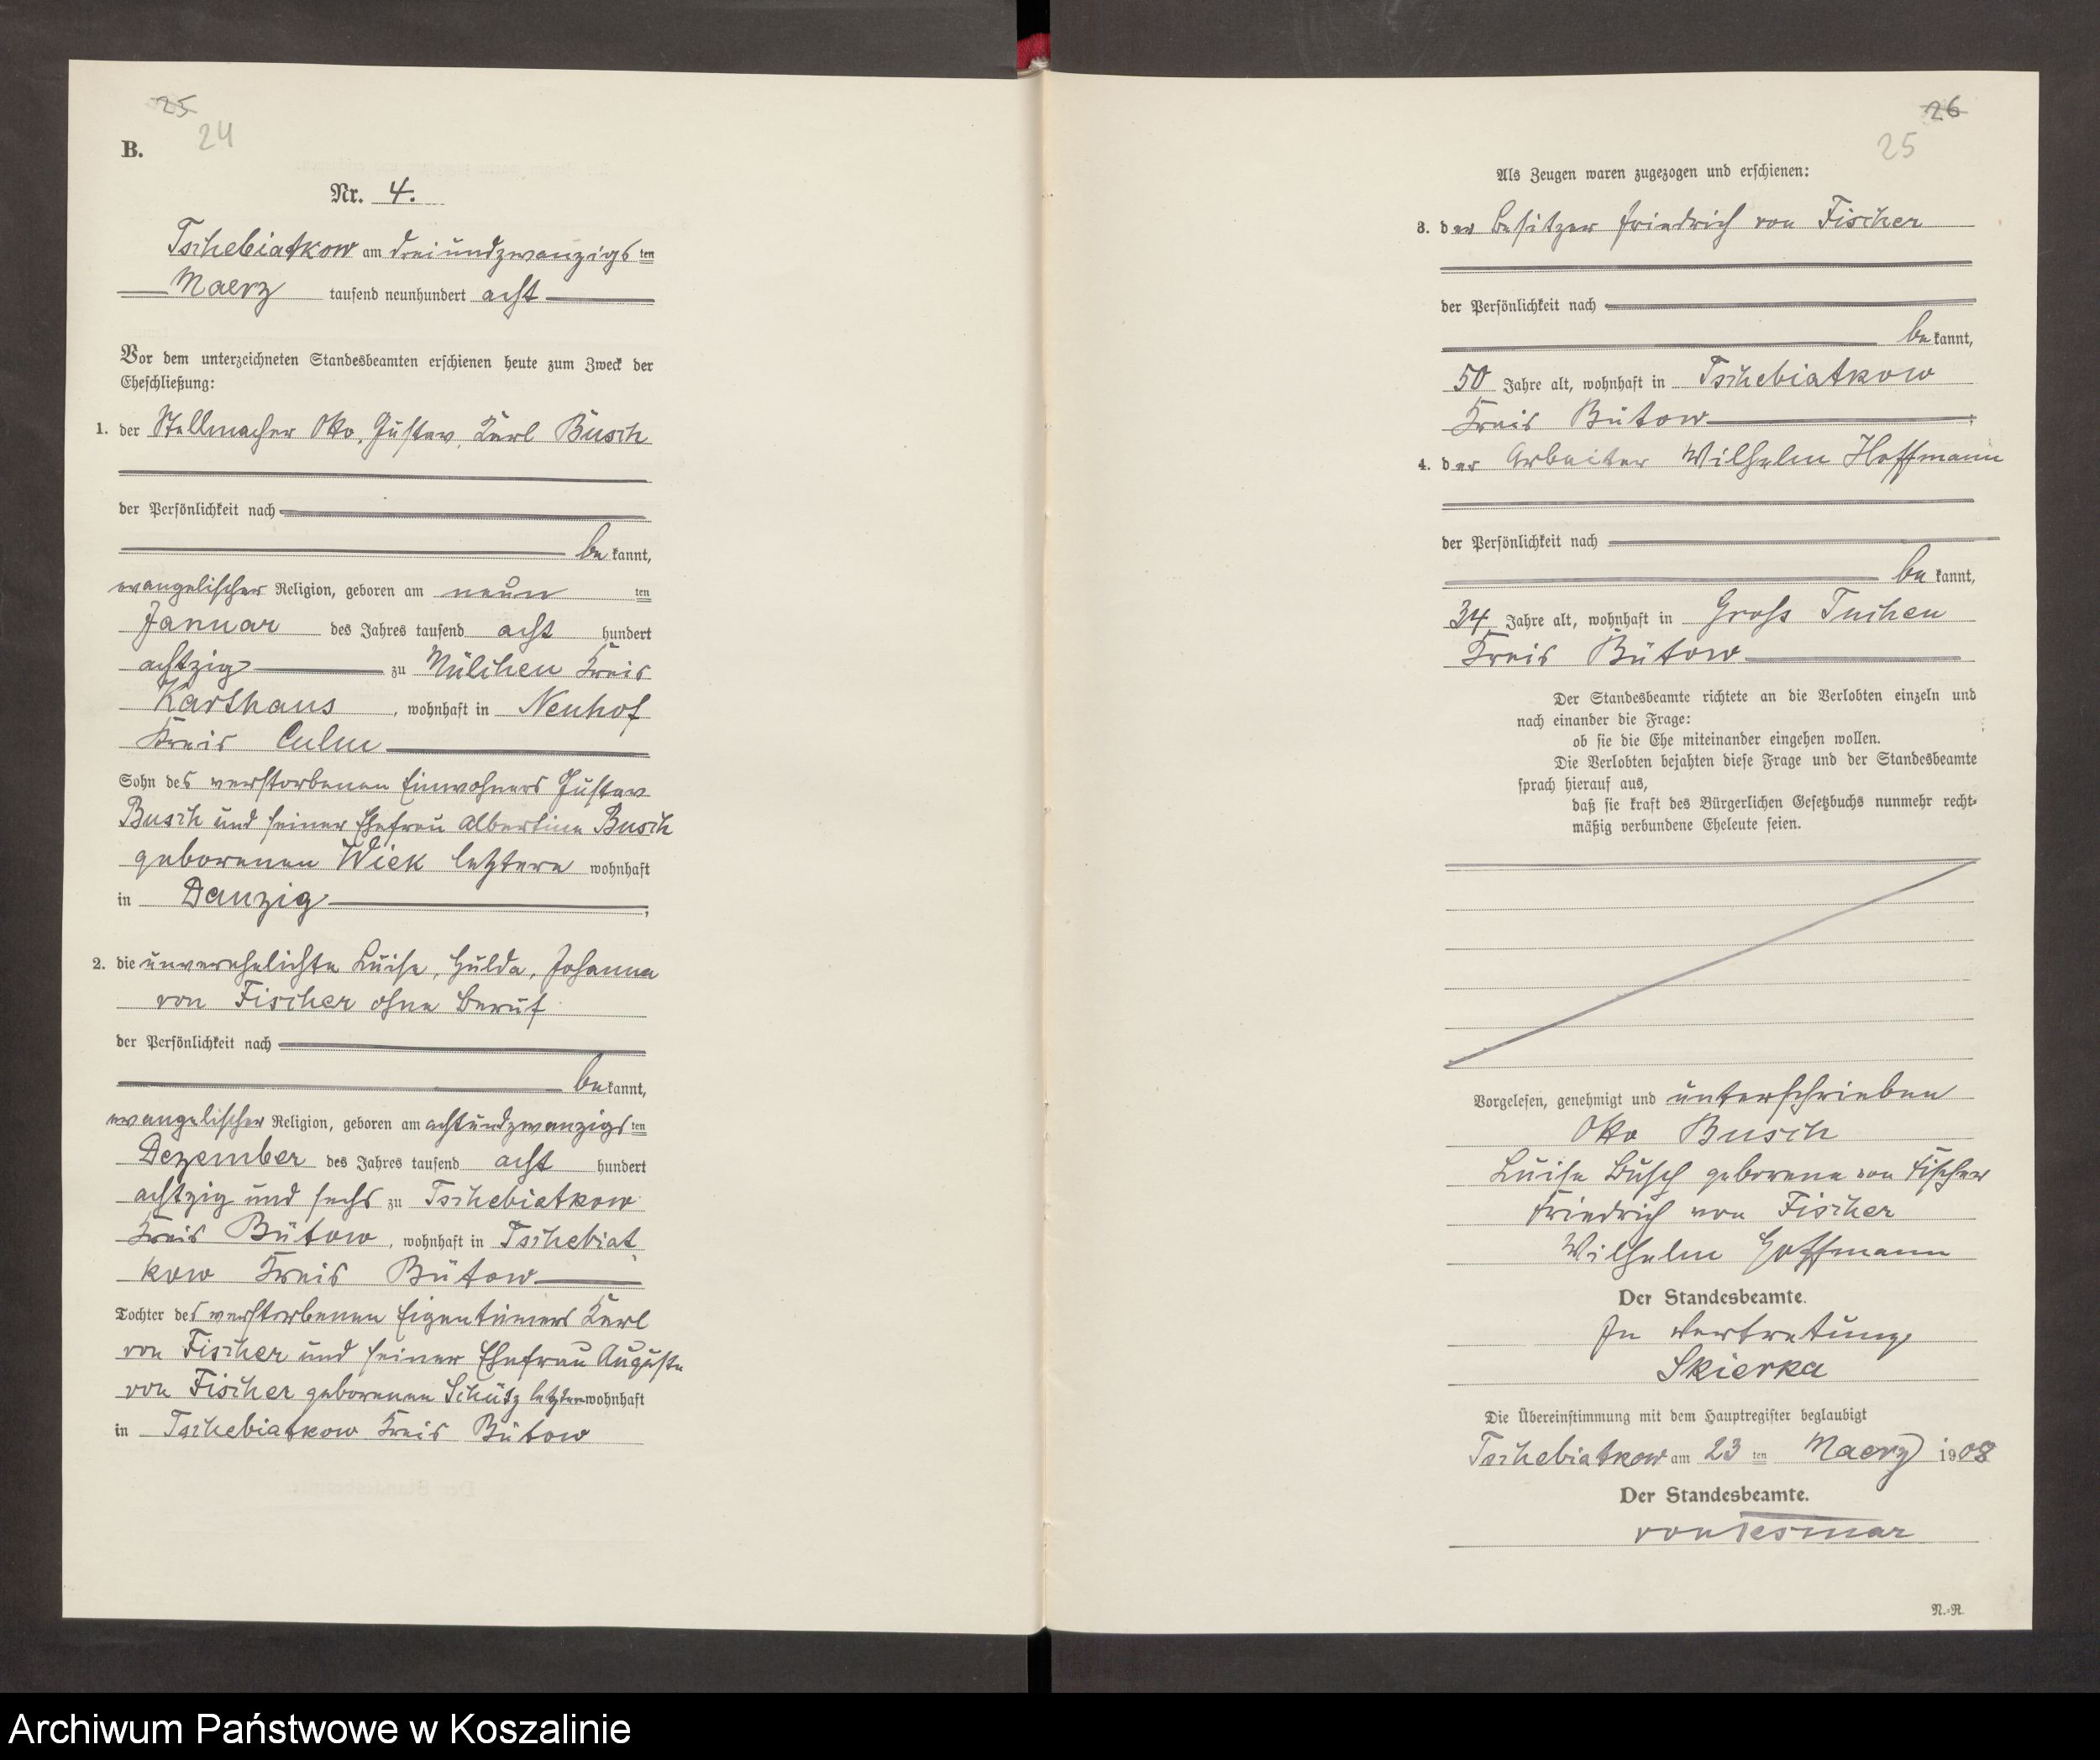 25
24
B.
Nr. 4.
Tschebiatkow am dreiundzwanzigsten
Maerz tausend neunhundert acht
Vor dem unterzeichneten Standesbeamten erschienen heute zum Zweck der
Eheschließung:
1. der Stellmacher Otto, Gustav, Karl Busch
der Persönlichkeit nach
bekannt,
evangelischer Religion, geboren am neunten
Januar des Jahres tausend acht hundert
achtzig zu Kreis
Karthaus, wohnhaft in Neuhof
Kreis Culm
Sohn des verstorbenen Einwohners Gustav
Busch und seiner Ehefrau Albertine Busch
geborenen Wiek letztere wohnhaft
in Danzig;
2. die unverehelichte Luise, Hulda, Johanna
von Fischer ohne Beruf
der Persönlichkeit nach
bekannt,
evangelischer Religion, geboren am achtundzwanzigsten
Dezember des Jahres tausend acht hundert
achtzig und sechs zu Tschebiatkow
Kreis Bütow, wohnhaft in Tschebiat
kow Kreis Bütow
Tochter des verstorbenen Eigentümers Karl
von Fischer und seiner Ehefrau Auguste
von Fischer geborenen Schütz letztere wohnhaft
in Tschebiatkow Kreis Bütow
26
25
Als Zeugen waren zugezogen und erschienen:
3. der Besitzer Friedrich von Fischer
der Persönlichkeit nach
bekannt,
50 Jahre alt, wohnhaft in Tschebiatkow
Kreis Bütow;
4. der Arbeiter Wilhelm Hoffmann
der Persönlichkeit nach
bekannt,
34 Jahre alt, wohnhaft in Gross Tuchen
Kreis Bütow
Der Standesbeamte richtete an die Verlobten einzeln und
nach einander die Frage:
ob sie die Ehe miteinander eingehen wollen.
Die Verlobten bejahten diese Frage und der Standesbeamte
sprach hierauf aus,
daß sie kraft des Bürgerlichen Gesetzbuchs nunmehr recht-
mäßig verbundene Eheleute seien.
Vorgelesen, genehmigt und unterschrieben
Otto Busch
Luise Busch geborene von Fischer
Friedrich von Fischer
Wilhelm Hoffmann
Der Standesbeamte.
In Vertretung
Skierka
Die Übereinstimmung mit dem Hauptregister beglaubigt
Tschebiatkow am 23 ten Maerz 1908
Der Standesbeamte.
von Tesmar
N.-R.
Archiwum Państwowe w Koszalinie